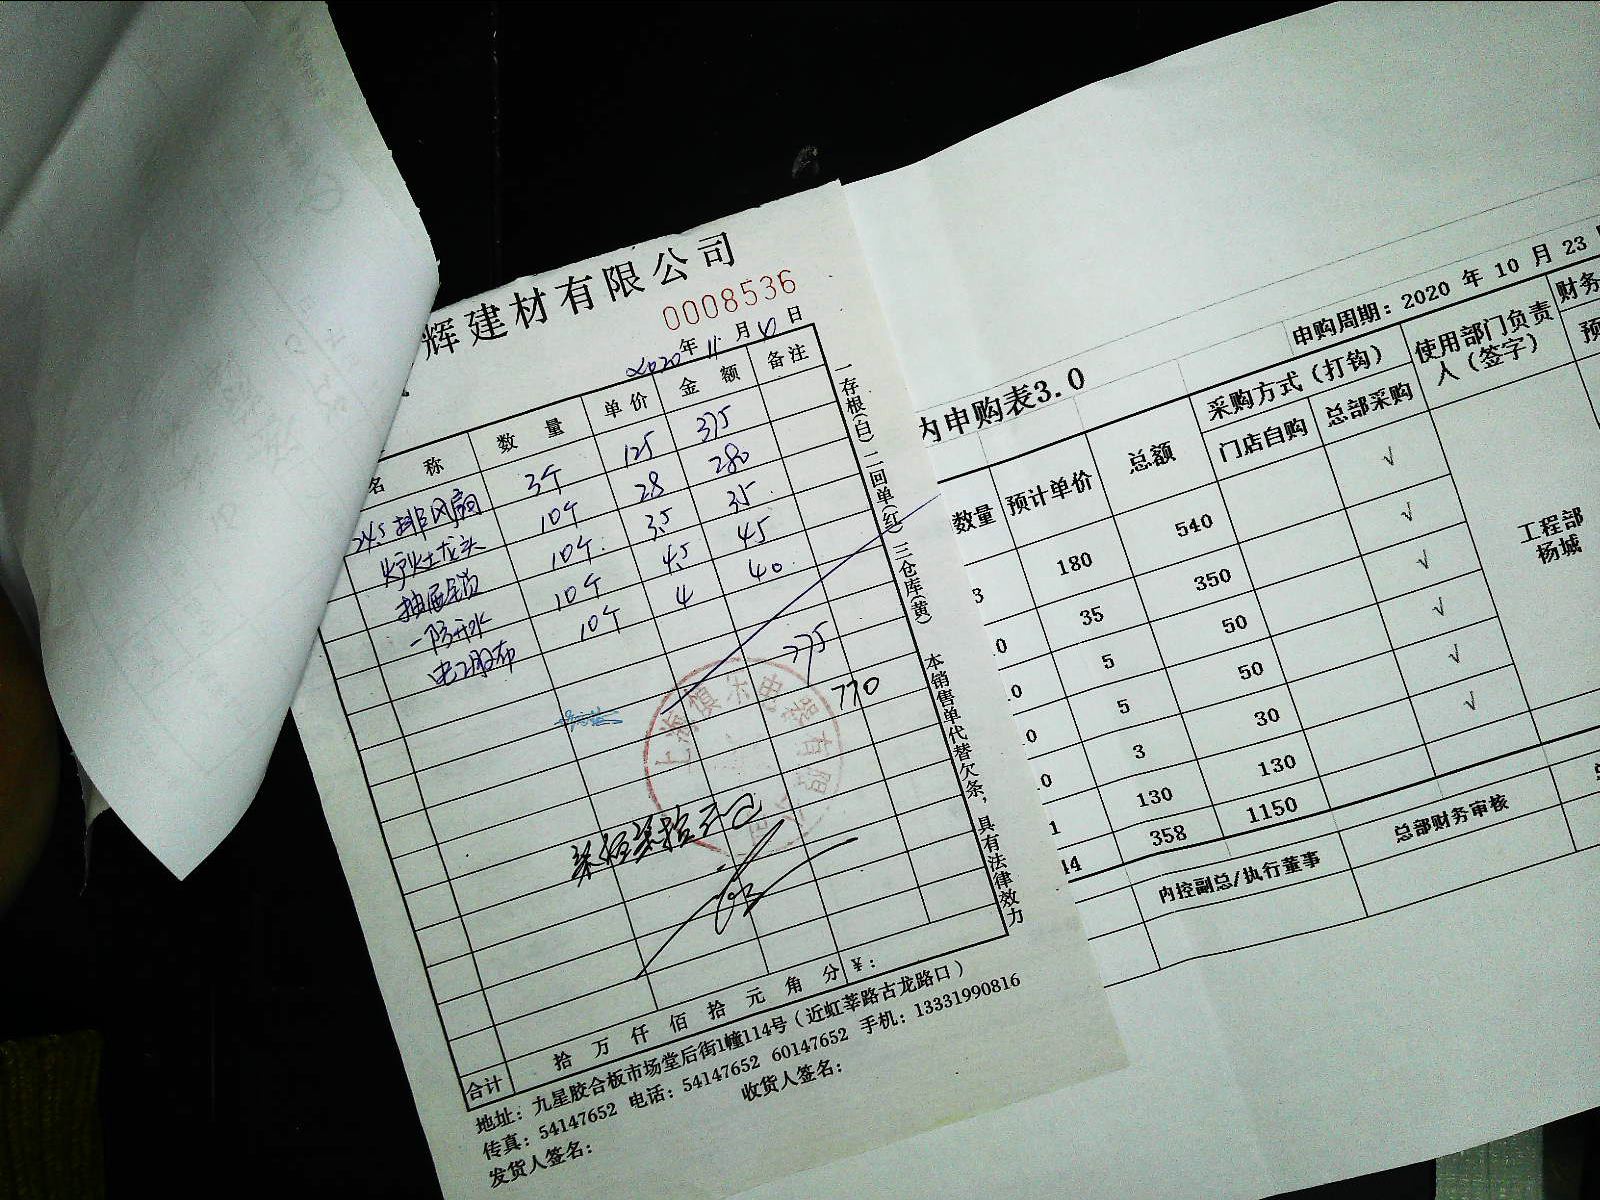 辉建材有限公司
0008536
2020年11月10日
名 称 数 量 单价 金 额 备注
24.5排风扇 3个 125 375
炉灶龙头 10个 28 280
抽屉锁 10个 3.5 35
防冻水 10个 4.5 45
电工胶布 10个 4 40
775
770
合计 拾 万 仟 佰 拾 元 角 分 ¥:
地址:九星胶合板市场堂后街1幢114号(近虹莘路古龙路口)
传真:54147652 电话:54147652 60147652 手机:13331990816
发货人签名: 收货人签名:
一存根(白)二回单(红)三仓库(黄) 本销售单代替欠条,具有法律效力
内申购表3.0
申购周期:2020 年 10 月 23
数量 预计单价 总额 采购方式(打钩) 使用部门负责人(签字) 财务
门店自购 总部采购 预
3 180 540 √
0 35 350 √
0 5 50 √
0 5 50 √
0 3 30 √
1 130 130 √
44 358 1150
工程部
杨城
内控副总/执行董事 总部财务审核